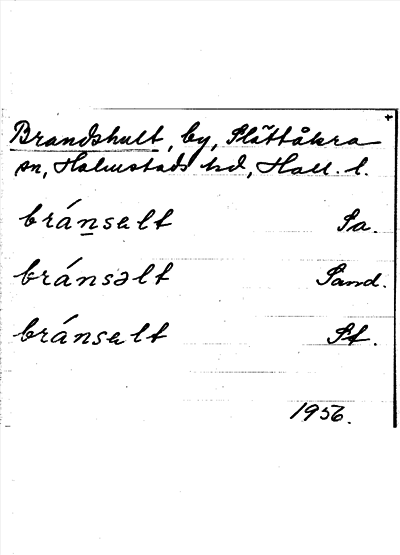 +
Brandshult, by, Slättåkra
sn, Halmstads hd, Hall. l.
bránsalt Sa.
bránsəlt Sand.
bránsalt St.
1956.